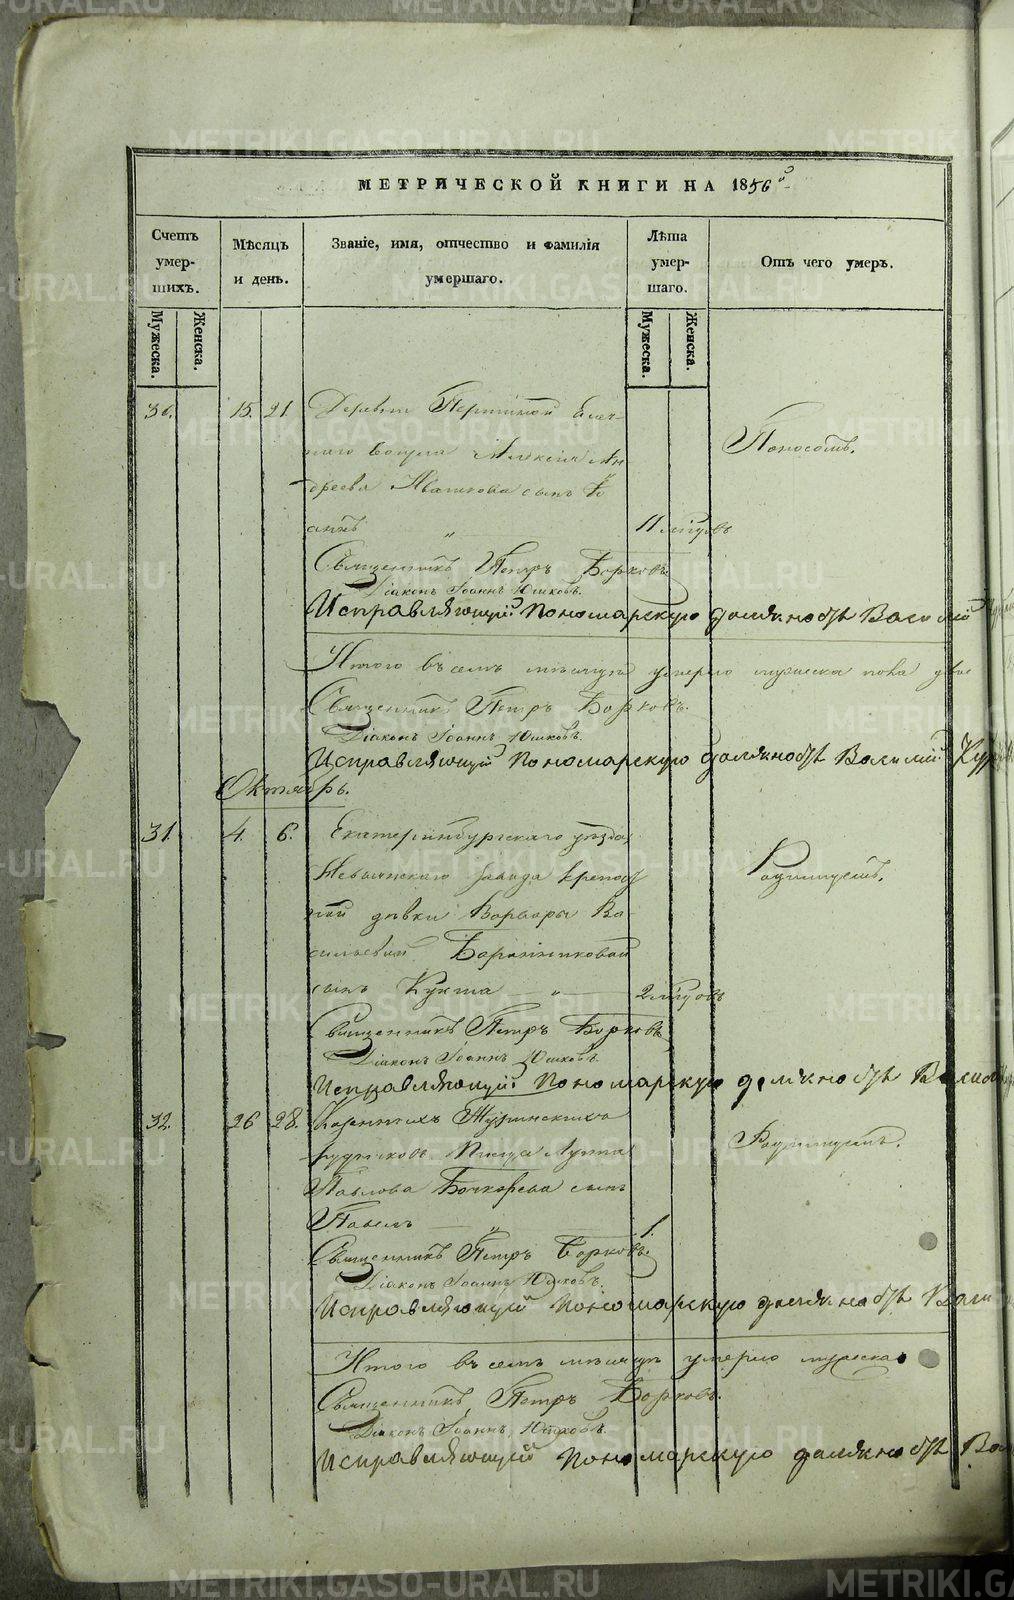 МЕТРИЧЕСКОЙ КНИГИ НА 1856й
Счетъ умер-шихъ.
Мужеска.
Женска.
Мѣсяцъ и день.
Званіе, имя, отчество и фамилія умершаго.
Лѣта умер-шаго.
Мужеска.
Женска.
Отъ чего умеръ.
15. 21. Деревни
Алексія Ан-
дреева сынъ Іо
аннъ „ 11 мѣсяцовъ
Поносомъ.
Священникъ Петръ Борковъ
Діаконъ Іоаннъ Юшковъ.
Исправляющій Пономарскую должность Василій
Итого въ семъ мѣсяцѣ умерло мужеска пола двое
Священникъ Петръ Борковъ.
Діаконъ Іоаннъ Юшковъ.
Исправляющій Пономарскую должность Василій
Октябрь.
31. 4. 6. Екатеринбургскаго уѣзда,
Невьянскаго завода крепост
ной дѣвки Варвары Ва-
сильевой
сынъ „ 2 мѣсяцовъ
Родимцемъ.
Священникъ Петръ Борковъ
Діаконъ Іоаннъ Юшковъ.
Исправляющій Пономарскую должность Василій
32. 26 28. Казенныхъ Турьинскихъ
рудниковъ Лукіа
Павлова Бочкарева сынъ
Павелъ „ 1.
Родимцемъ.
Священникъ Петръ Борковъ.
Діаконъ Іоаннъ Юшковъ.
Исправляющій Пономарскую должность Васи
Итого въ семъ мѣсяцѣ умерло мужеска
Священникъ Петръ Борковъ.
Діаконъ Іоаннъ Юшковъ.
Исправляющій Пономарскую должность Ва
METRIKI.GASO-URAL.RU